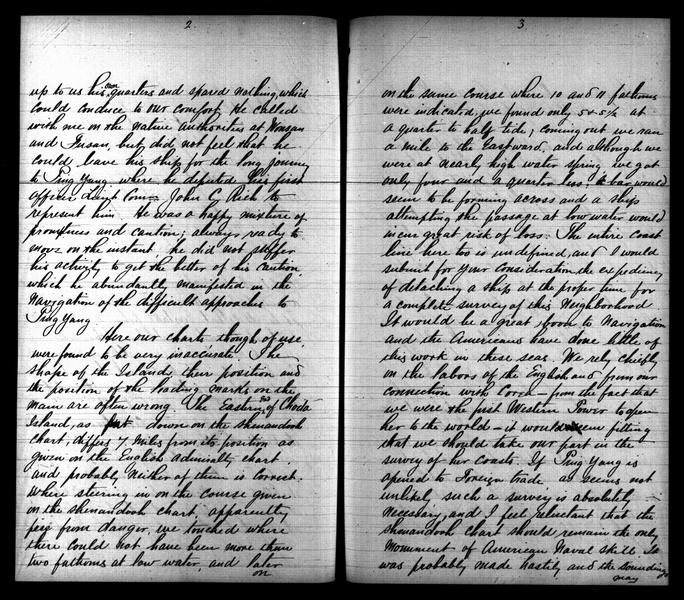 2
up to us his own quarters and spared nothing, which
could conduce to our comfort. He called
with me on the native authorities at Wonsan
and Fusan, but did not feel that he
could leave his ship for the long journey
to Ping Yang where he deputed his first
officer Lieut Comr John C Rich to
represent him. He was a happy mixture of
promptness and caution; always ready to
move on the instant he did not suffer
his activity to get the better of his caution
which he abundantly manifested in the
Navigation of the difficult approaches to
Ping Yang
Here our charts though of use
were found to be very inaccurate. The
shape of the Islands, their position and
the position of the leading marks on the
main are often wrong. The Eastern end of Choda
Island, as put down on the Shenandoah
chart, differs 7 miles from its position as
given on the English admiralty chart,
and probably neither of them is correct.
Where steering in on the course given
on the Shenandoah chart, apparently
free from danger, we touched where
there could not have been more than
two fathoms at low water, and later
on
3
on the same course where 10 and 11 fathoms
were indicated, we found only 5 & 5½ at
a quarter to half tide; coming out we ran
a mile to the Eastward, and although we
were at nearly high water spring we got
only four and a quarter less. A bar would
seem to be forming across and a ship
attempting the passage at low water would
incur great risk of loss. The entire coast
line here too is undefined, and I would
submit for your consideration the expediency
of detaching a ship at the proper time for
a complete survey of this Neighborhood
It would be a great boon to Navigation
and the Americans have done little of
this work in these seas. We rely chiefly
on the labors of the English and from our
connection with Corea – from the fact that
we were the first Western Power to open
her to the world – it would seem fitting
that we should take our part in the
survey of her Coasts. If Ping Yang is
opened to Foreign trade as seems not
unlikely, such a survey is absolutely
necessary, and I feel reluctant that the
Shenandoah chart should remain the only
monument of American Naval skill. It
was probably made hastily and the soundings
may